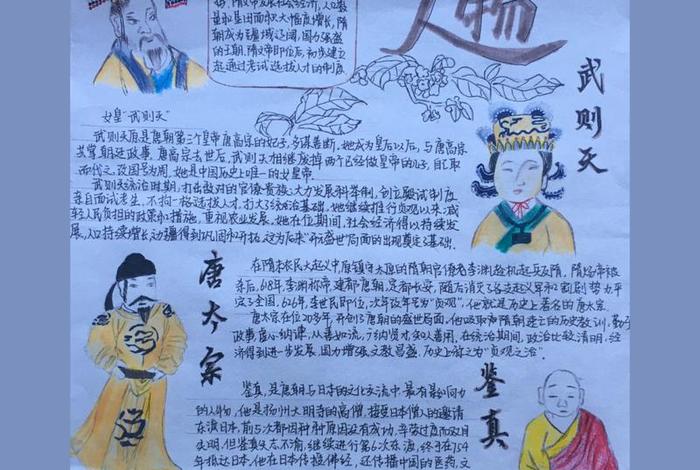 隋文帝发展社会经济,人口数
量和垦田面积大幅度增长,隋
朝成为疆域辽阔,国力强盛
的王朝,隋文帝即位后,初步建立
起通过考试选拔人才的制度
女皇"武则天"
武则天原是唐朝第三个皇帝唐高宗的妃子,多谋善断,她成为皇后以后,与唐高宗
共掌朝廷政事,唐高宗去世后,武则天相继废掉两个已经做皇帝的儿子,自己取
而代之,改国号为周,她是中国历史上唯一的女皇帝.
武则天统治时期,打击敌对的官僚贵族,大力发展科举制,创立殿试制度
亲自面试考生,不拘一格选拔人才,扩大了统治基础,她继续推行贞观以来减
轻人民负担的政策和措施,重视农业发展,她在位期间,社会经济得以持续发
展,人口持续增长,边疆得到巩固和开拓,这为后来"开元盛世"局面的出现奠定基础.
武则天
唐太宗
在隋末农民大起义中,原镇守太原的隋朝官僚李渊趁机起兵反隋,隋炀帝被
杀后,618年,李渊称帝,建都唐朝,定都长安,随后消灭各支起义军和割剧势力,平
定了全国,626年,李世民即位,次年改年号为"贞观",他就是历史上著名的唐太宗.
唐太宗在位20多年,开创了唐朝的盛世局面,他吸取
政事,虚心纳谏,从善如流,广纳贤才,知人善用,在统治期间,政治比较清明,经
济得到进一步发展,国力增强,文教昌盛,历史上称之为"贞观之治".
鉴真
鉴真,是唐朝与日本的文化交流中,最有影响力
的人物,他是扬州大明寺的高僧,接受日本僧人的邀请
东渡日本,前5次都因种种原因没有成功,辛劳过度而双目
失明,但鉴真矢志不渝,继续进行第6次东渡,终于在754
年抵达日本,他在日本传播佛经,还传播中国的医药,文